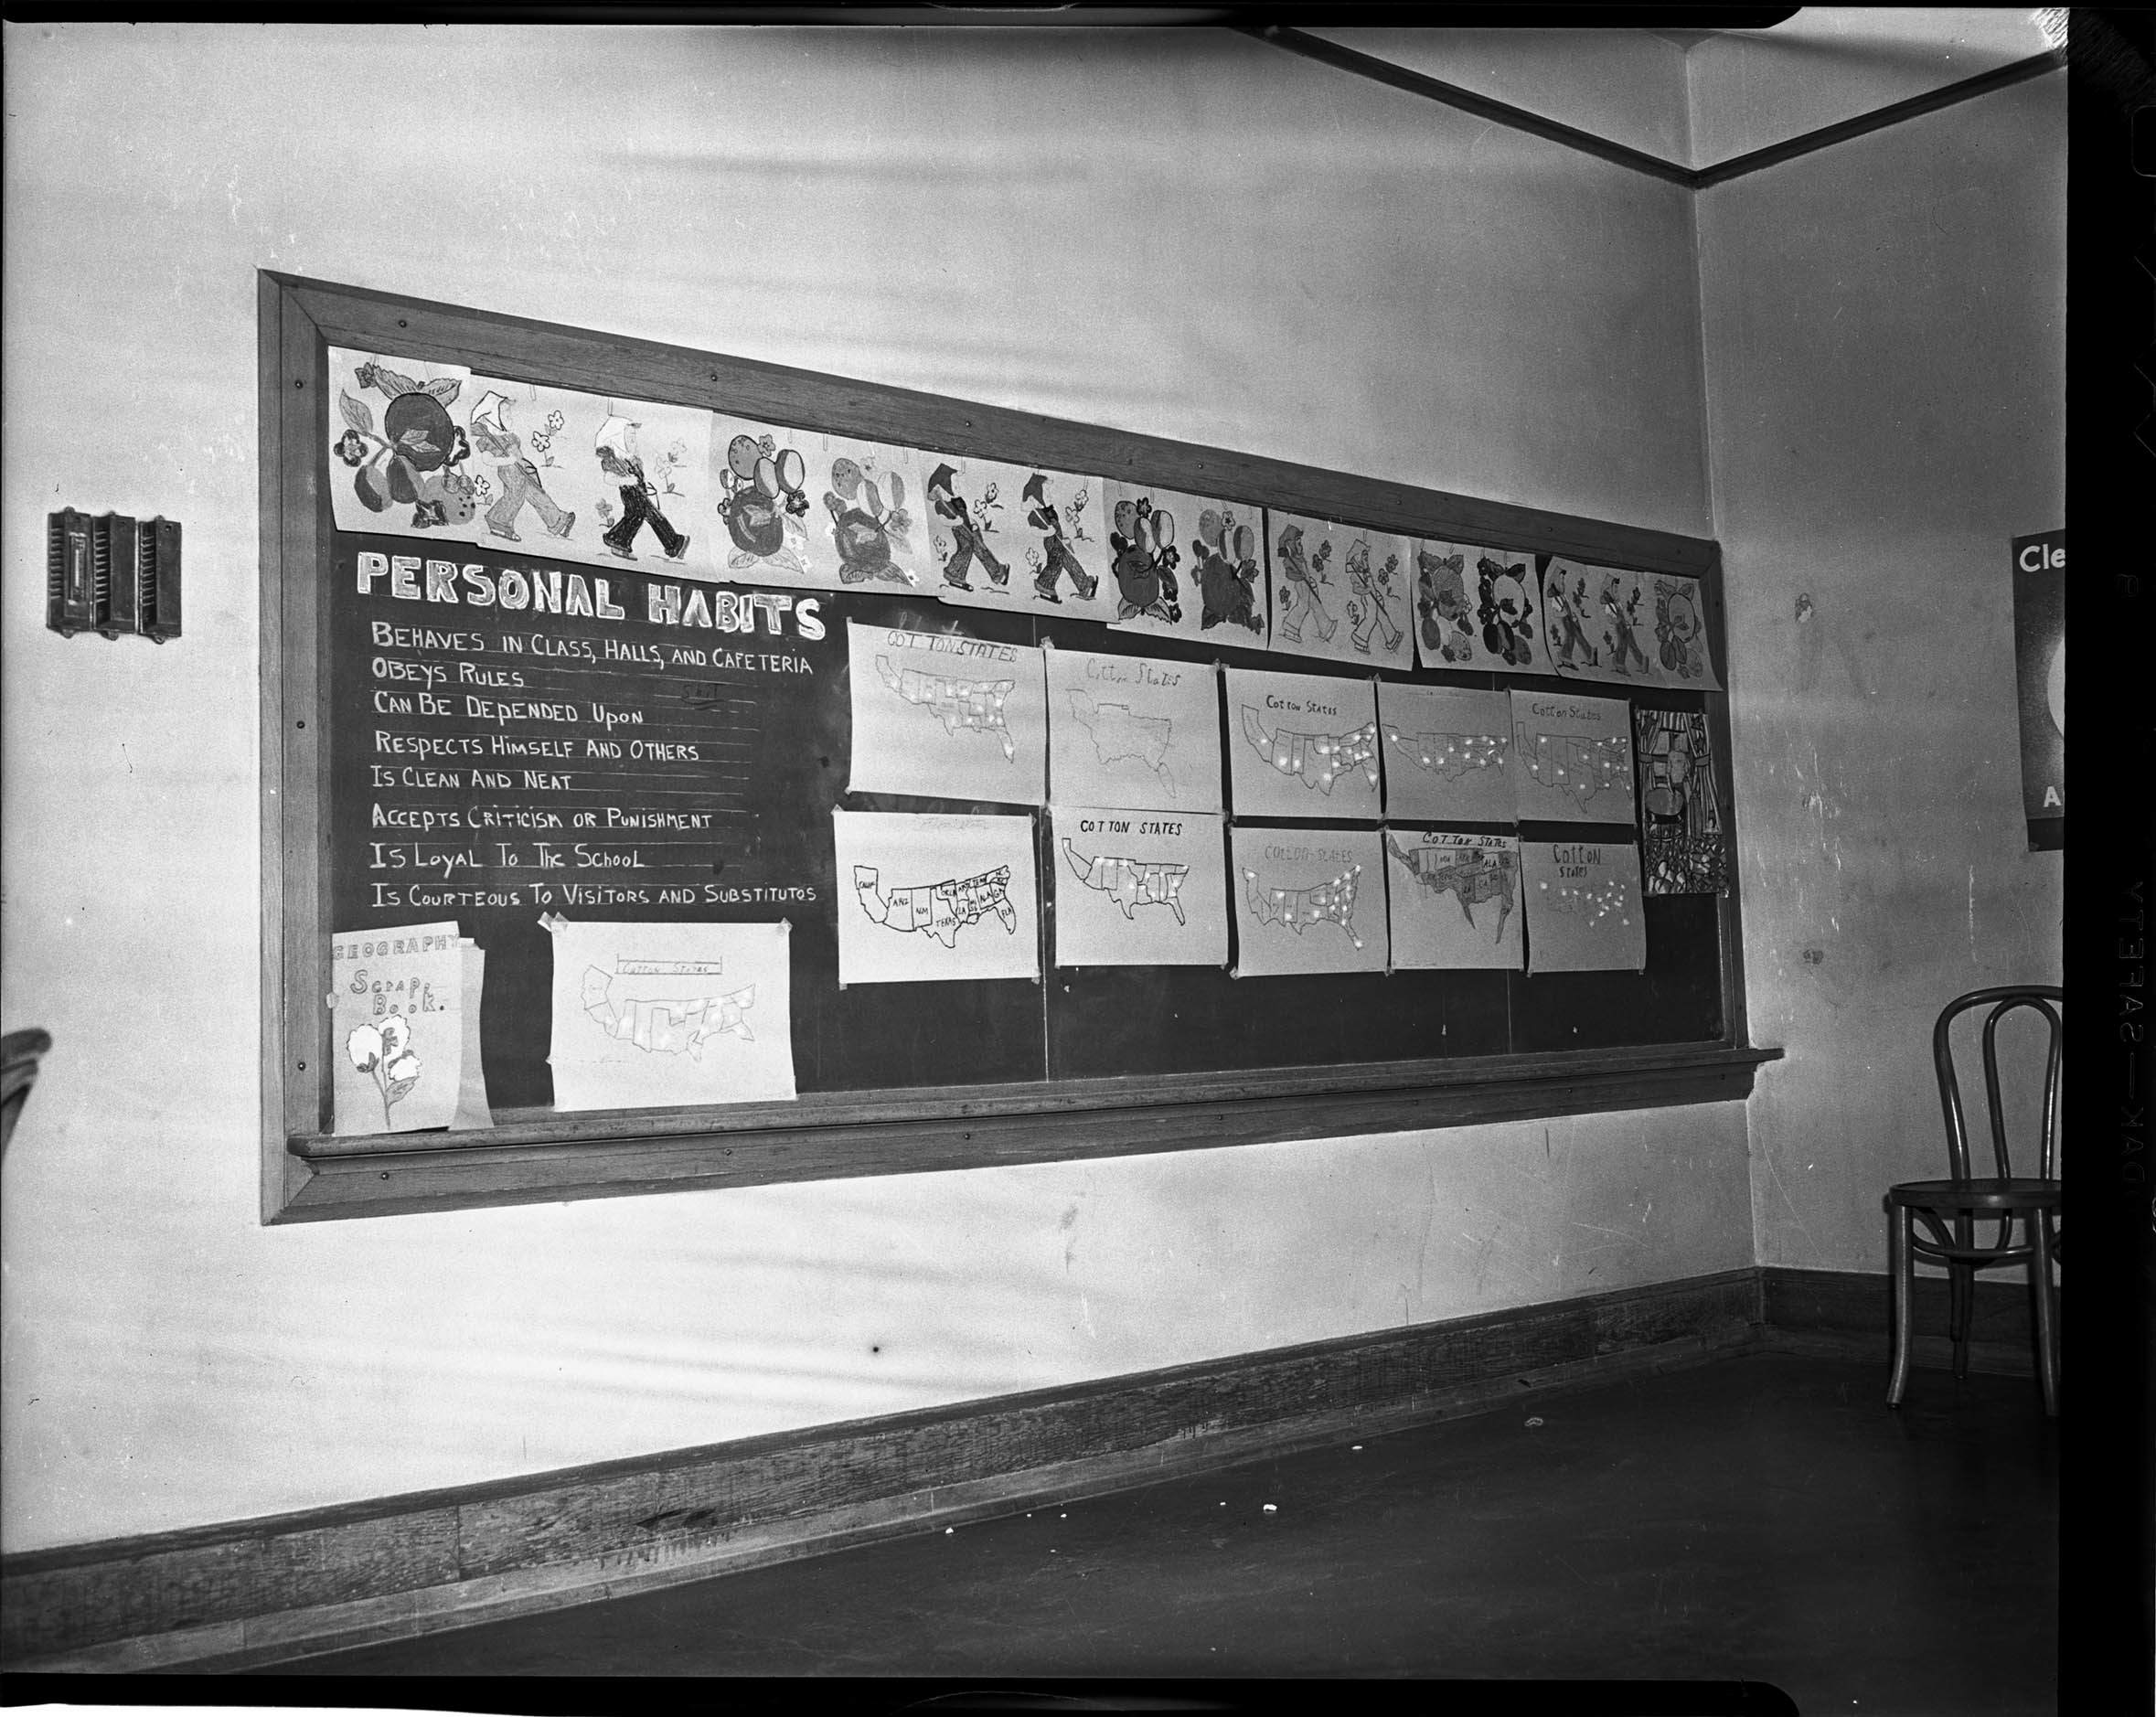 PERSONAL HABITS
BEHAVES IN CLASS, HALLS, AND CAFETERIA
OBEYS RULES
CAN BE DEPENDED UPON
RESPECTS HIMSELF AND OTHERS
IS CLEAN AND NEAT
ACCEPTS CRITICISM OR PUNISHMENT
IS LOYAL TO THE SCHOOL
IS COURTEOUS TO VISITORS AND SUBSTITUTOS
GEOGRAPHY
Scrap
Book.
Cotton States
COTTON STATES
Cotton States
COTTON STATES
Cotton States
CALIF
ARIZ
NM
TEXAS
LA
ALA
GA
FLA
COTTON STATES
COTTON STATES
COTTON STATES
ALA
COTTON
STATES
Cle
A